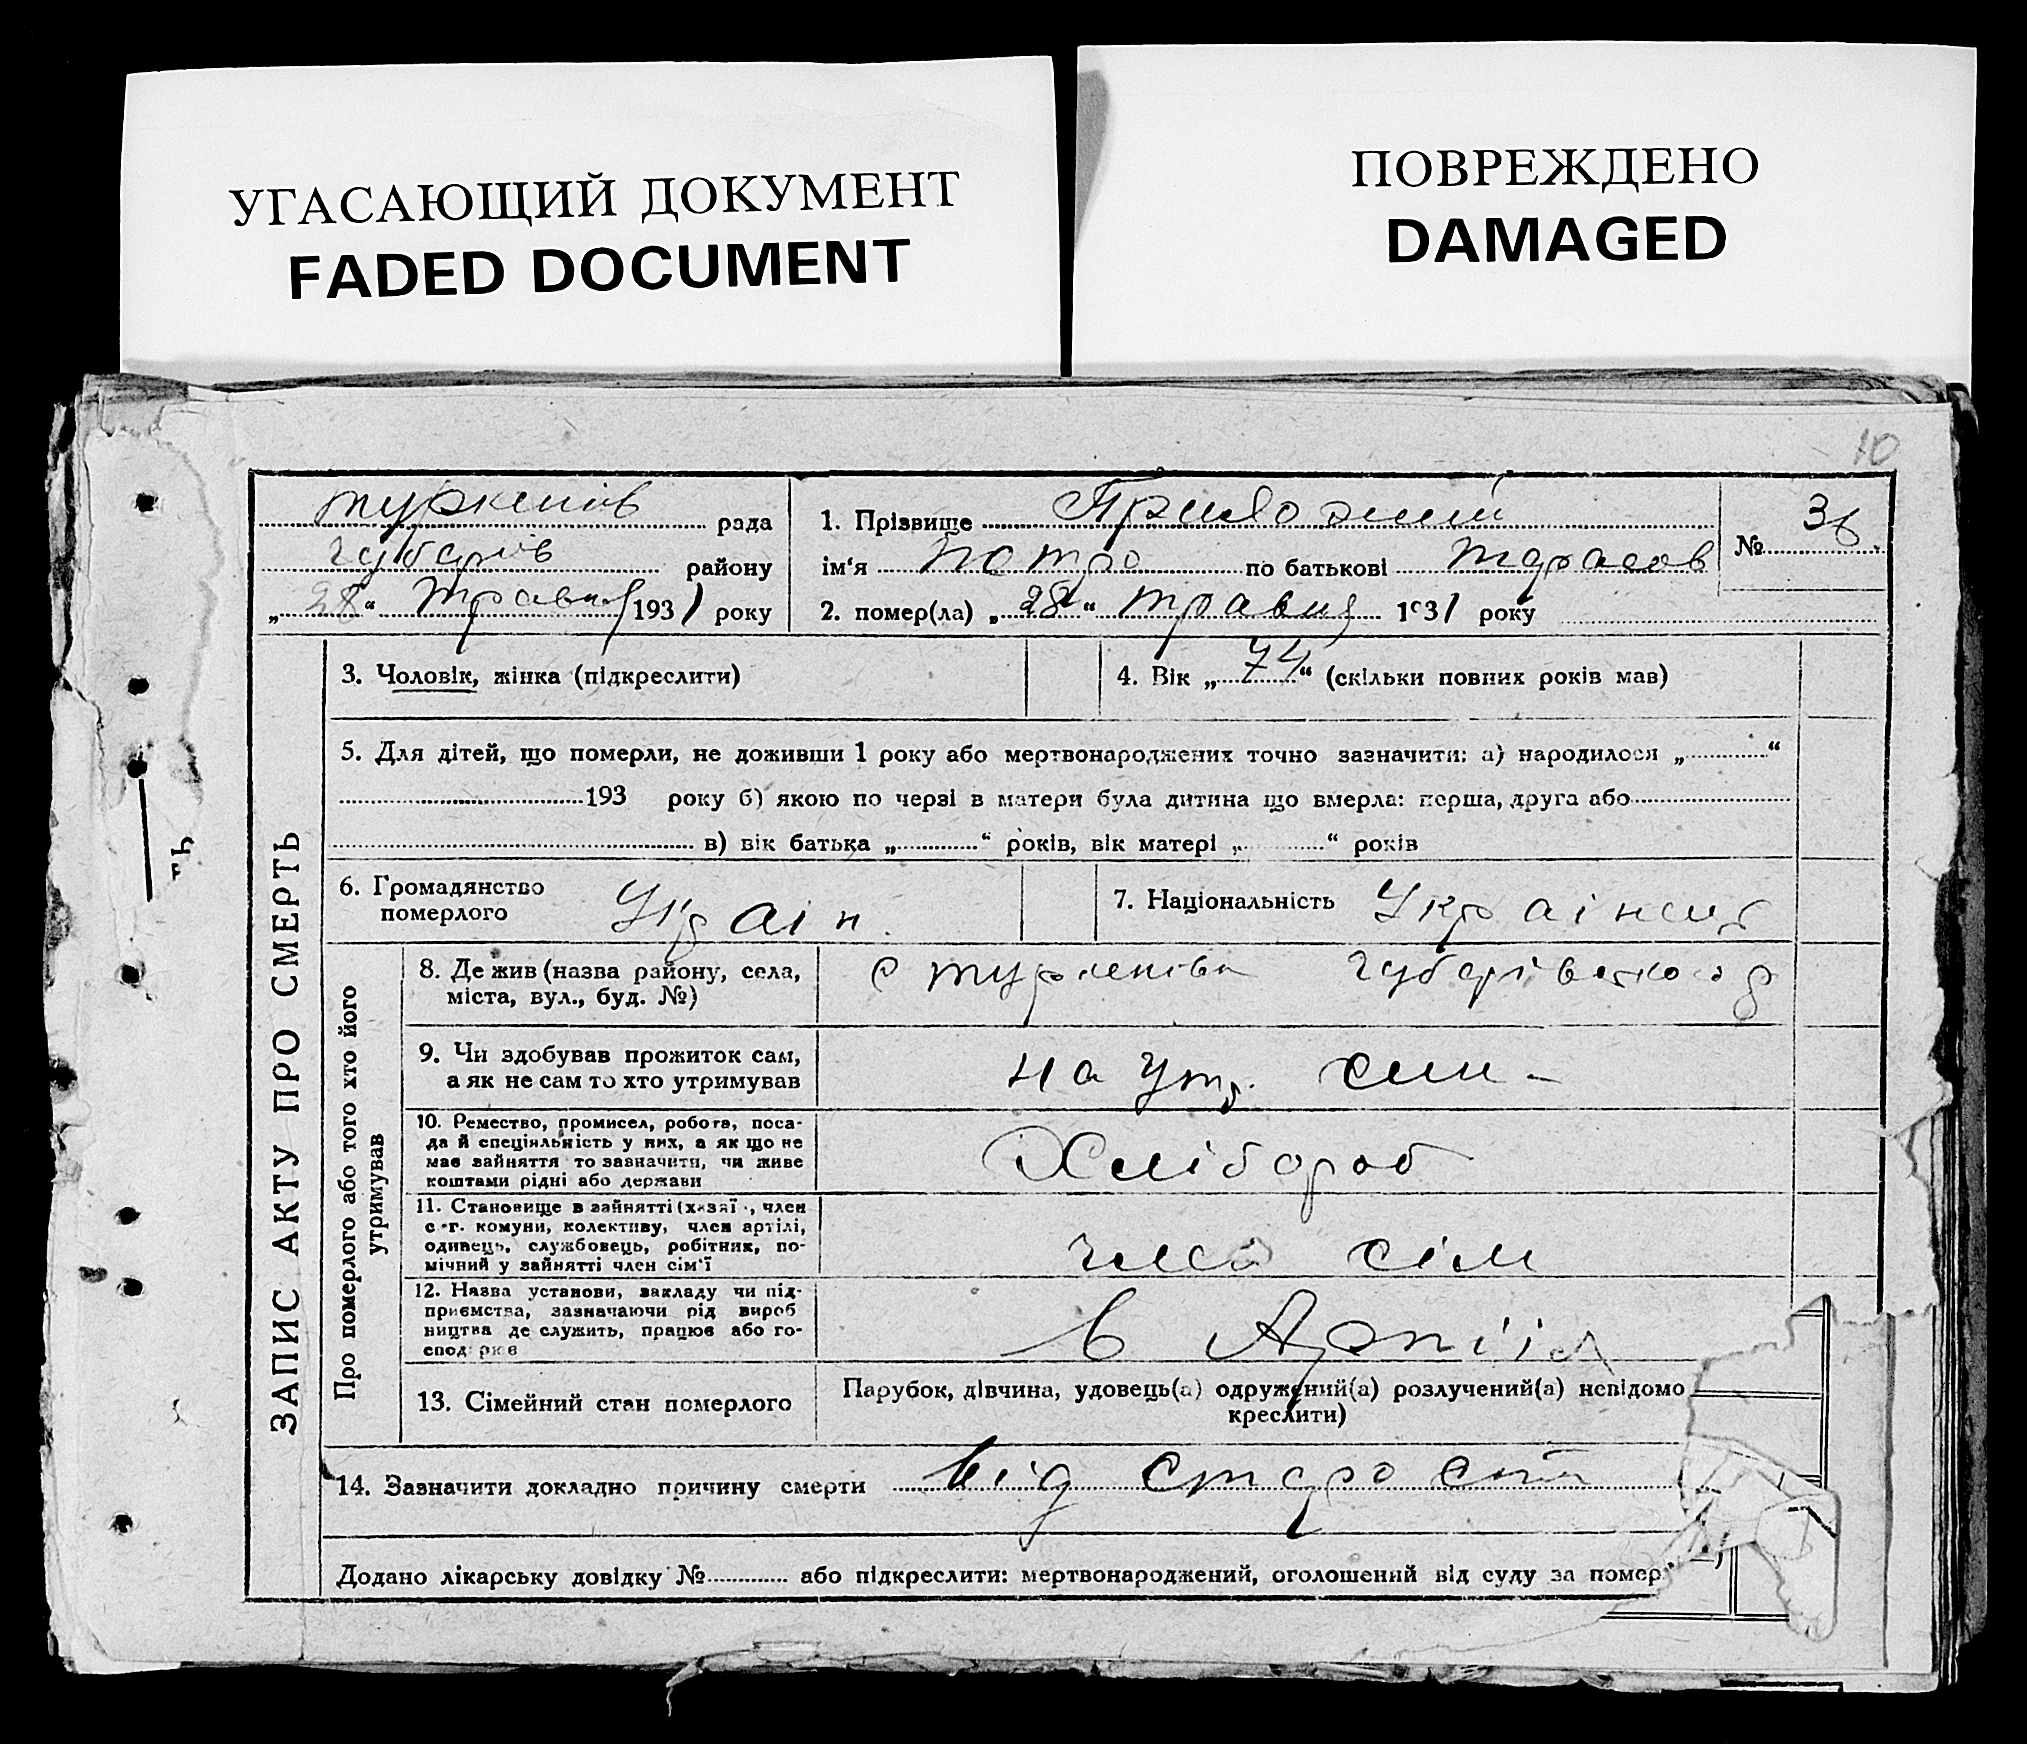 УГАСАЮЩИЙ ДОКУМЕНТ
FADED DOCUMENT
ПОВРЕЖДЕНО
DAMAGED
10
ЗАПИС АКТУ ПРО СМЕРТЬ
туркенів рада
губарів району
„28“ травня 1931 року
1. Прізвище Приходний
ім‘я Петро по батькові Тарасов
2. помер(ла) „28“ травня 1931 року
№ 36
3. Чоловік, жінка (підкреслити)
4. Вік „74“ (скільки повних років мав)
5. Для дітей, що померли, не доживши 1 року або мертвонароджених точно зазначити: а) народилося „ “
193 року б) якою по черзі в матери була дитина що вмерла: перша, друга або
в) вік батька „ “ років, вік матері „ “ років
6. Громадянство
померлого Україн.
7. Національність Українец
Про померлого або того хто його
утримував
8. Де жив (назва району, села,
міста, вул., буд. №)
с туркенівка губарівського р
9. Чи здобував прожиток сам,
а як не сам то хто утримував
на утр. син-
10. Ремество, промисел, робота, поса-
да й спеціяльність у них, а як що не
має зайняття то зазначити, чи живе
коштами рідні або держави
Хлібороб
11. Становище в зайнятті (хазяї , член
с.-г. комуни, колективу, член артілі,
одинець, службовець, робітник, по-
мічний у зайнятті член сім‘ї
член сім
12. Назва установи, закладу чи під-
приємства, зазначаючи рід вироб
ництва де служить, працює або го-
сподарює
в Артіл
13. Сімейний стан померлого
Парубок, дівчина, удовець(а) одружений(а) розлучений(а) невідомо
креслити)
14. Зазначити докладно причину смерти від старости
Додано лікарську довідку № або підкреслити: мертвонароджений, оголошений від суду за помер